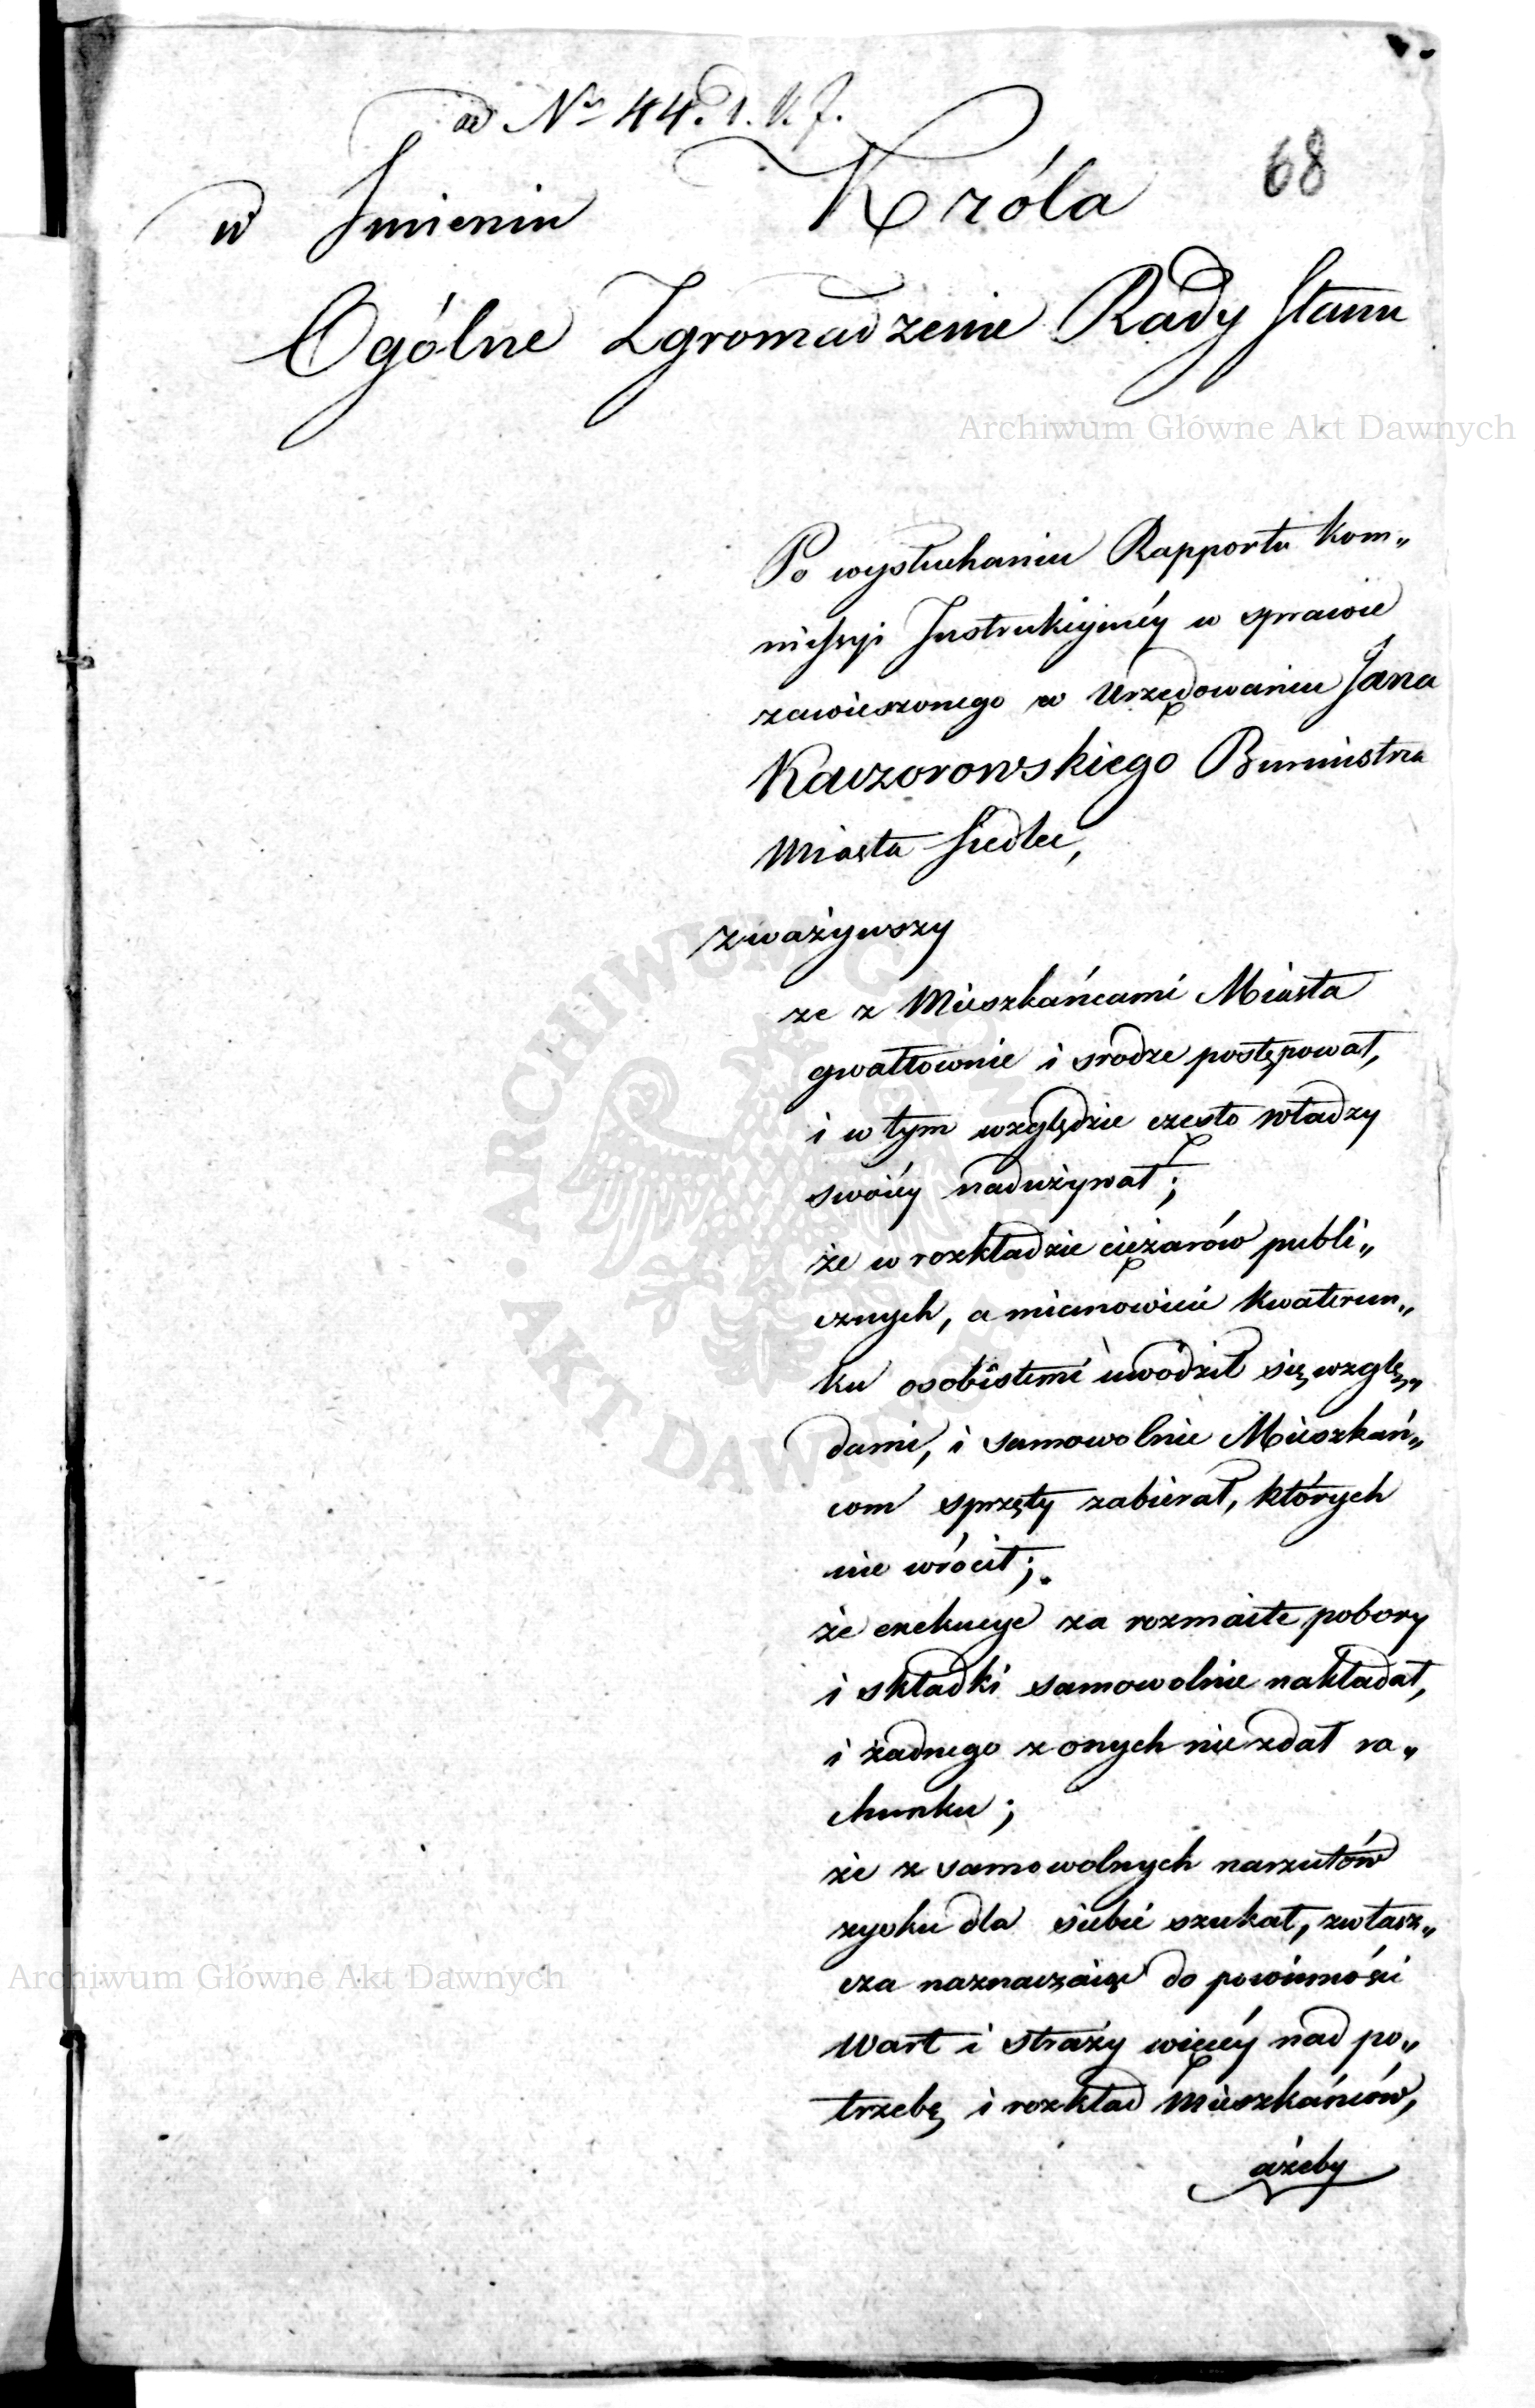 ad Nº 44. d. 1. K. J.
68
w Jmieniu Króla
Ogólne Zgromadzenie Rady Stanu
Archiwum Główne Akt Dawnych
Po wysłuchaniu Rapportu Kom„
missyi Jnstrukcyinéy w sprawie
zawieszonego w Urzędowaniu Jana
Kaczorowskiego Burmistrza
Miasta Siedlec,
zważywszy
że z Mieszkańcami Miasta
gwałtownie i srodze postępował,
i w tym względzie często władzy
swoiéy nadużywał;
że w rozkładzie ciężarów publi„
cznych, a mianowicie kwaterun„
ku osobistemi uwodził się wzglę„
dami, i samowolnie Mieszkań„
com sprzęty zabierał, których
nie wrócił;
że exekucye za rozmaite pobory
i składki samowolnie nakładał,
i żadnego z onych nie zdał ra„
chunku;
że z samowolnych narzutów
zysku dla siebie szukał, zwłasz„
cza naznaczaiąc do powinności
Wart i straży więcéy nad po„
trzebę i rozkład Mieszkańców,
ażeby
Archiwum Główne Akt Dawnych
ARCHIWUM GŁÓWNE • AKT DAWNYCH •